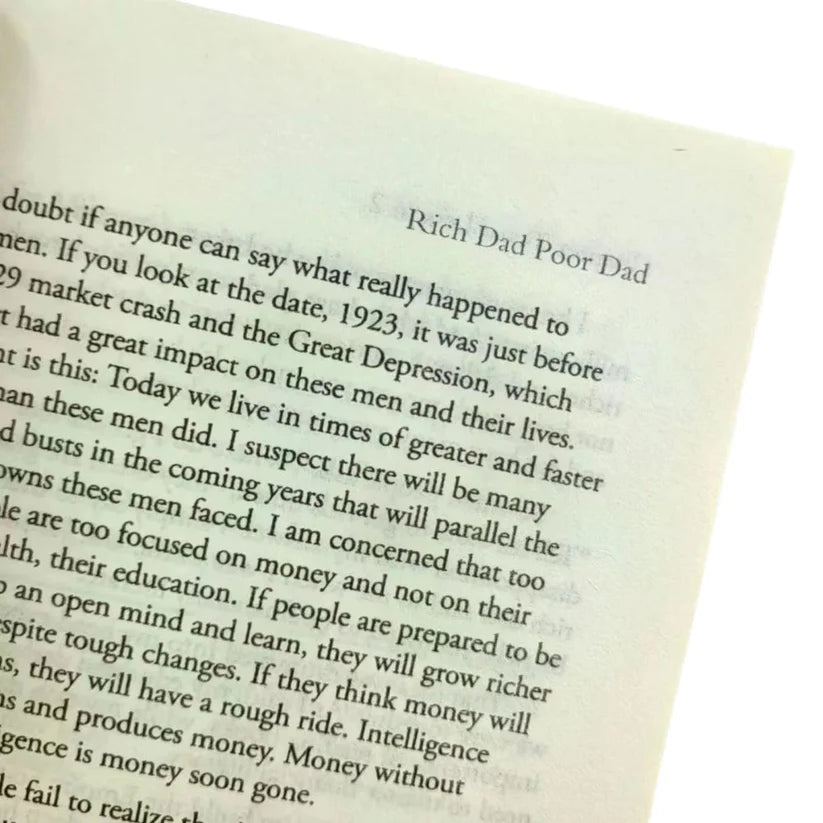 Rich Dad Poor Dad
doubt if anyone can say what really happened to
men. If you look at the date, 1923, it was just before
29 market crash and the Great Depression, which
t had a great impact on these men and their lives.
nt is this: Today we live in times of greater and faster
han these men did. I suspect there will be many
d busts in the coming years that will parallel the
owns these men faced. I am concerned that too
le are too focused on money and not on their
lth, their education. If people are prepared to be
p an open mind and learn, they will grow richer
spite tough changes. If they think money will
ns, they will have a rough ride. Intelligence
ns and produces money. Money without
igence is money soon gone.
le fail to realize